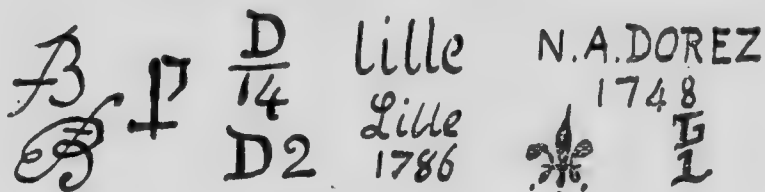 B
B
D
14
D2
lille
Lille
1786
N.A.DOREZ
1748
L